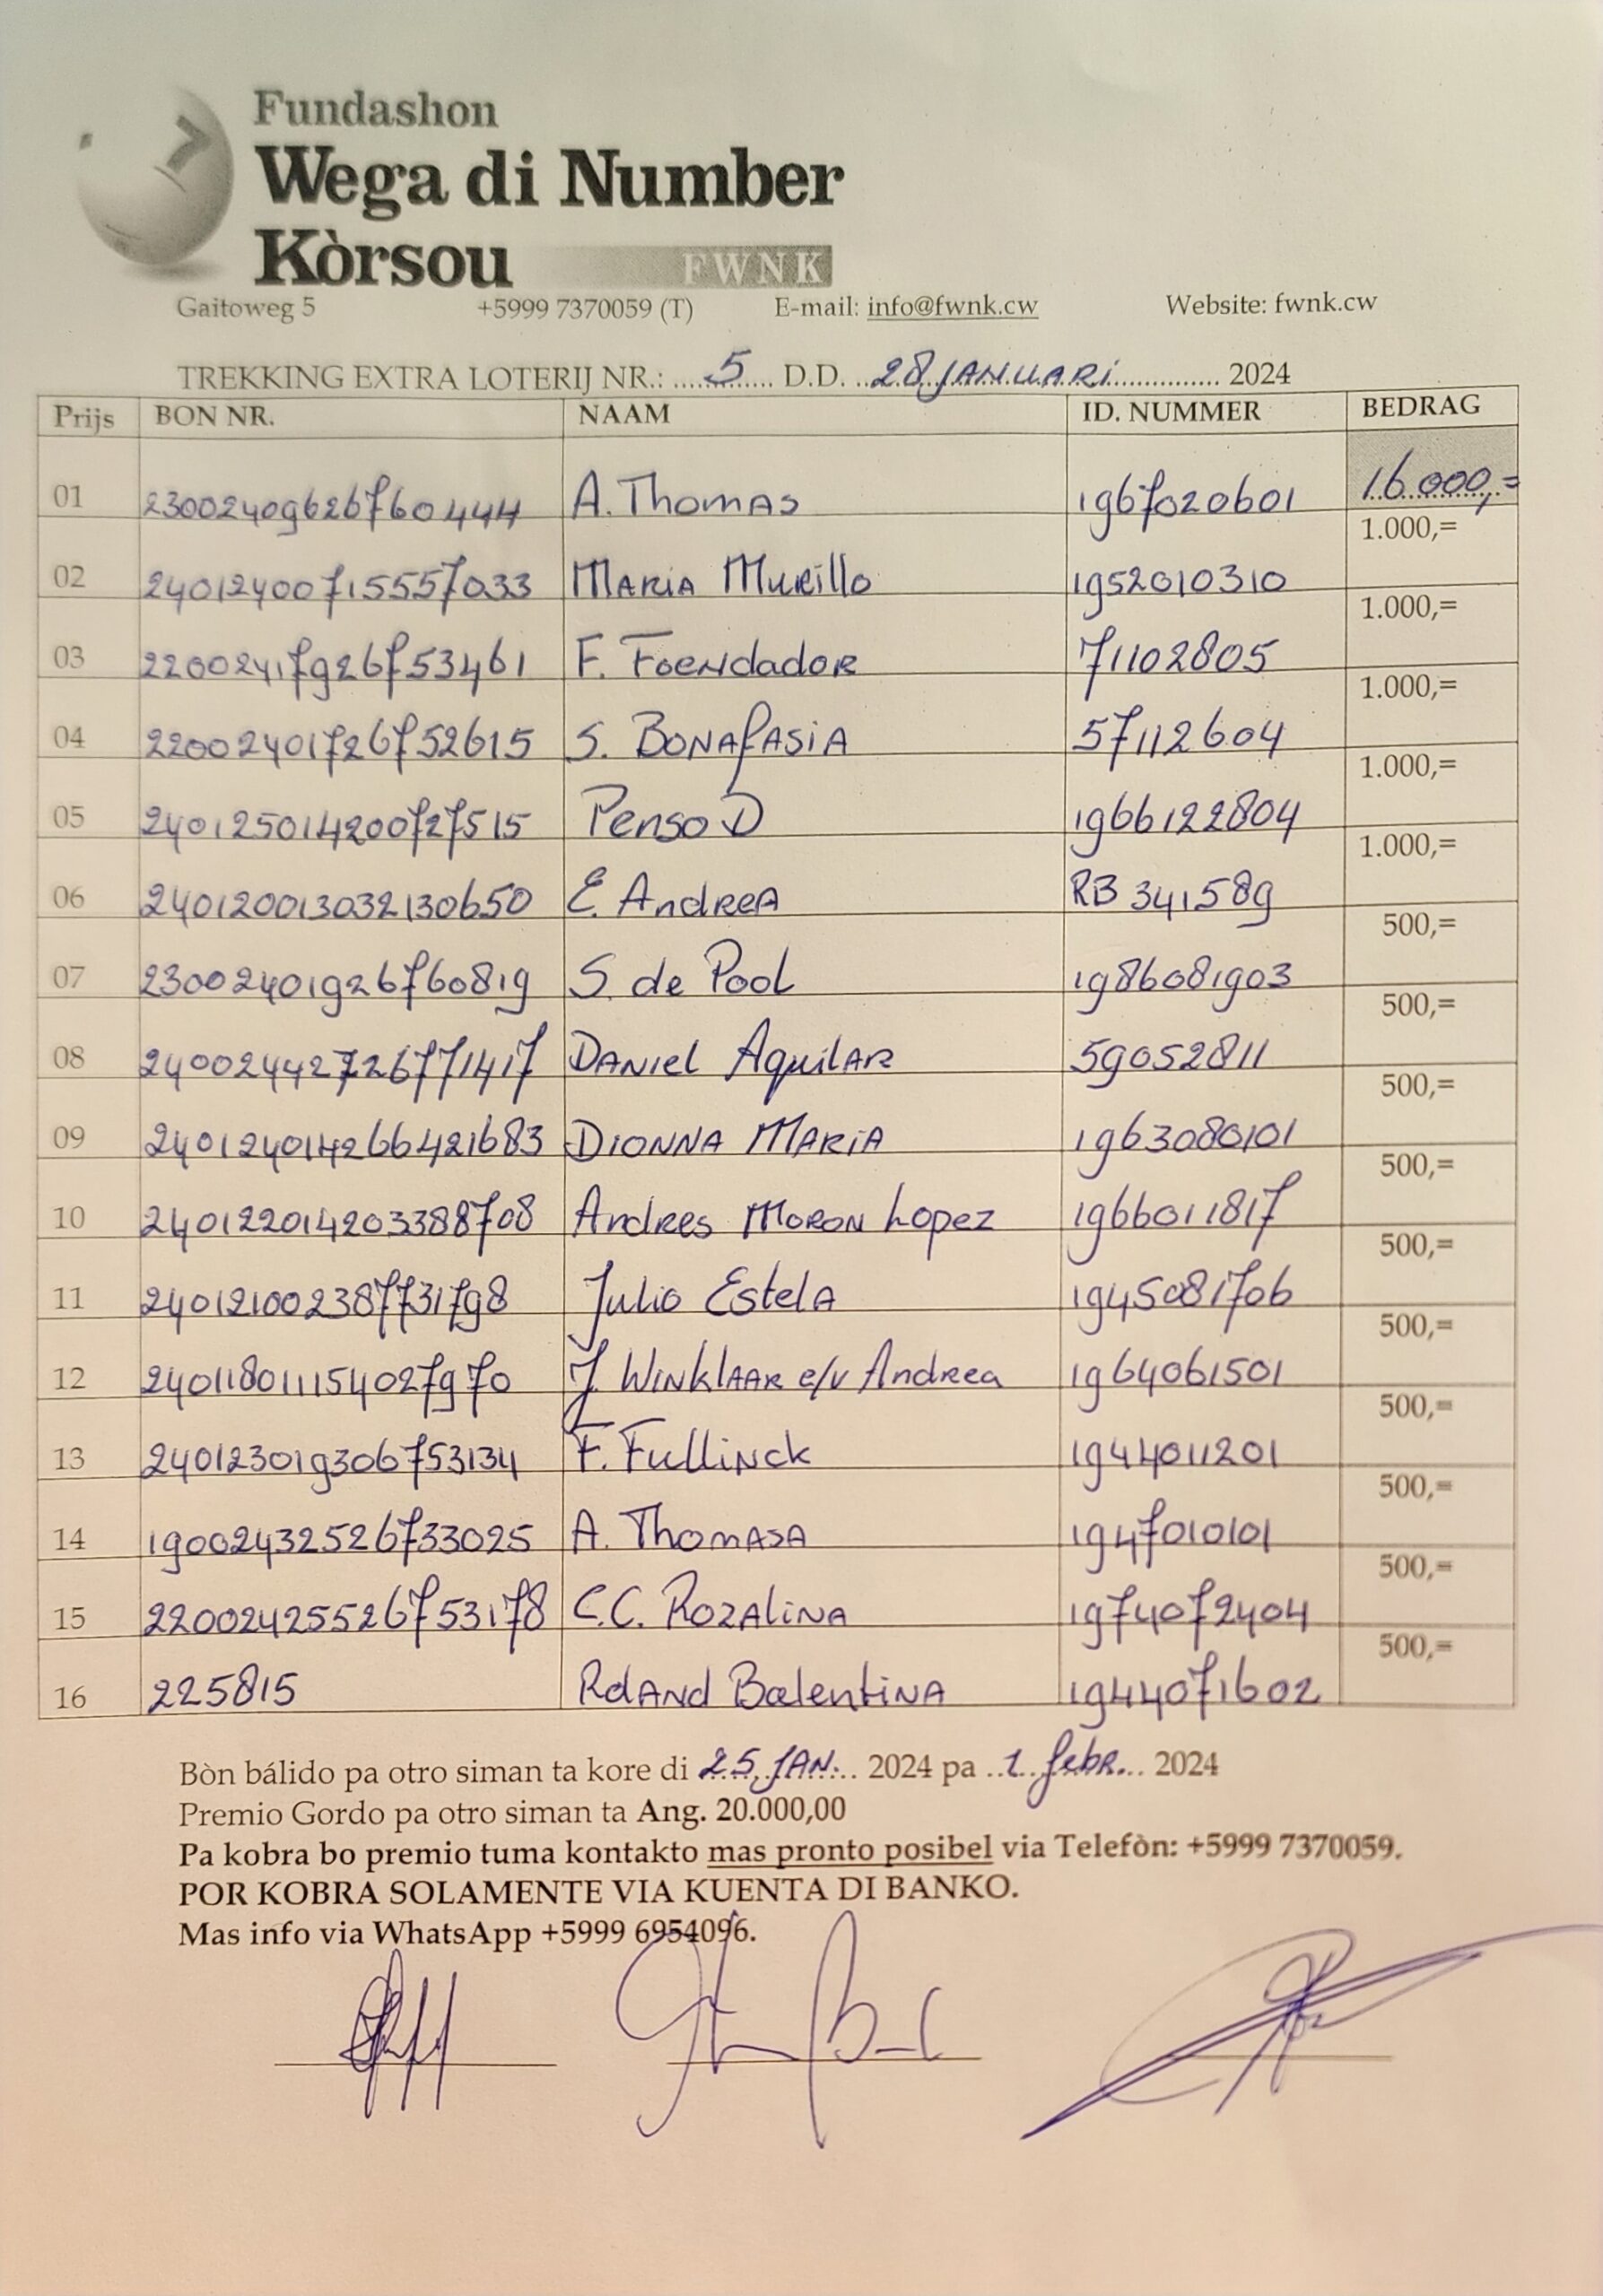 Fundashon
Wega di Number
Kòrsou FWNK
Gaitoweg 5 +5999 7370059 (T) E-mail: info@fwnk.cw Website: fwnk.cw
TREKKING EXTRA LOTERIJ NR.: 5 D.D. 28 JANUARI 2024
Prijs BON NR. NAAM ID. NUMMER BEDRAG
01 23002409626760444 A. Thomas 1967020601 16.000,=
02 24012400715557033 Maria Murillo 1952010310 1.000,=
03 22002417926753461 F. Foendador 71102805 1.000,=
04 22002401726752615 S. Bonafasia 57112604 1.000,=
05 240125014200727515 Penso D 1966122804 1.000,=
06 240120013032130650 E. Andrea RB 341589 1.000,=
07 23002401926760819 S. de Pool 1986081903 500,=
08 24002442726771417 Daniel Aquilar 59052811 500,=
09 240124014266421683 Dionna Maria 1963080101 500,=
10 240122014203388708 Andres Moron Lopez 1966011817 500,=
11 240121002387731798 Julio Estela 1945081706 500,=
12 240118011154027970 J. Winklaar e/v Andrea 1964061501 500,=
13 240123019306753134 F. Fullinck 1944011201 500,=
14 19002432526733025 A. Thomasa 1947010101 500,=
15 22002425526753178 C.C. Rozalina 1974072404 500,=
16 225815 Roland Balentina 1944071602 500,=
Bòn bálido pa otro siman ta kore di 25 JAN. 2024 pa 1 febr. 2024
Premio Gordo pa otro siman ta Ang. 20.000,00
Pa kobra bo premio tuma kontakto mas pronto posibel via Telefòn: +5999 7370059.
POR KOBRA SOLAMENTE VIA KUENTA DI BANKO.
Mas info via WhatsApp +5999 6954096.